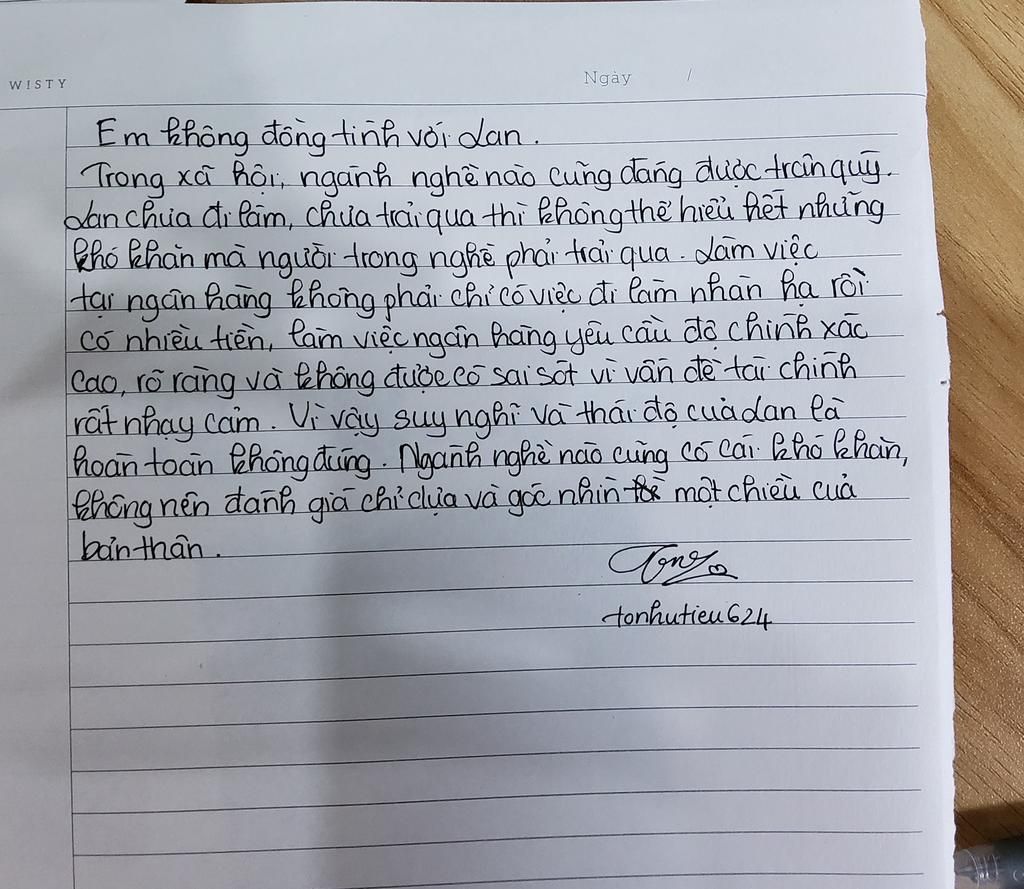 WISTY
Ngày /
Em không đồng tình với Lan.
Trong xã hội, ngành nghề nào cũng đáng được trân quý.
Lan chưa đi làm, chưa trải qua thì không thể hiểu hết những
khó khăn mà người trong nghề phải trải qua. Làm việc
tại ngân hàng không phải chỉ có việc đi làm nhàn hạ rồi
có nhiều tiền, làm việc ngân hàng yêu cầu độ chính xác
cao, rõ ràng và không được có sai sót vì vấn đề tài chính
rất nhạy cảm. Vì vậy suy nghĩ và thái độ của Lan là
hoàn toàn không đúng. Ngành nghề nào cũng có cái khó khăn,
không nên đánh giá chỉ dựa và góc nhìn một chiều của
bản thân.
tonhutieu624